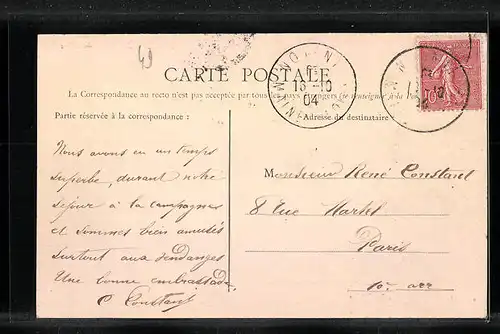 49
CARTE POSTALE
La Correspondance au recto n'est pas acceptée par tous les pays étrangers (se renseigner à la
Partie réservée à la correspondance :
Adresse du destinataire
15-10
04
10
Nous avons eu un temps
superbe, durant notre
séjour à la campagne
et sommes bien amusés
surtout aux vendanges
Une bonne embrassade
C Constant
Monsieur René Constant
8 Rue Martel
Paris
10e arr